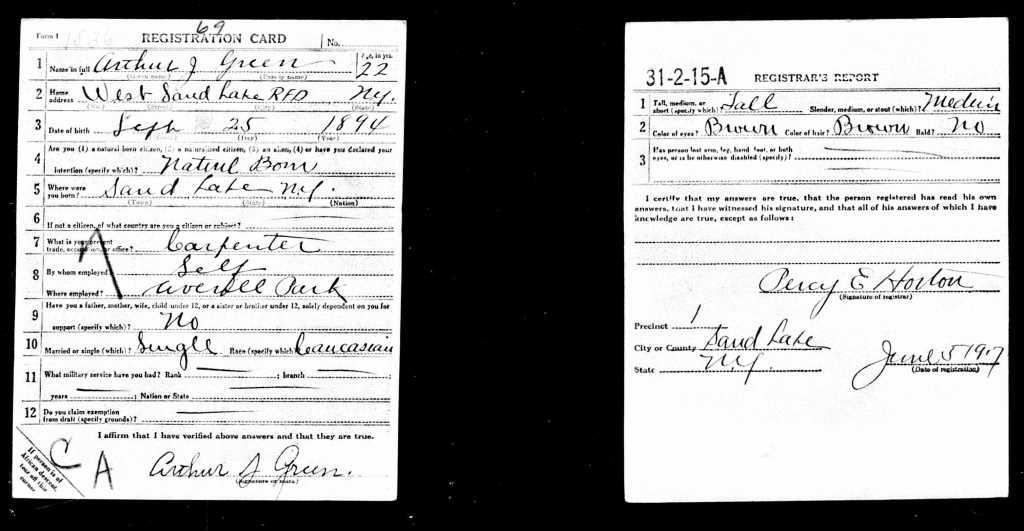 Form 1
69
REGISTRATION CARD No.
1 Name in full Arthur J Green Age, in yrs. 22
(Given name) (Family name)
2 Home address West Sand Lake RFD N.Y.
(No.) (Street) (City) (State)
3 Date of birth Sept 25 1894
(Month) (Day) (Year)
4 Are you (1) a natural born citizen, (2) a naturalized citizen, (3) an alien, (4) or have you declared your
intention (specify which)? Natural Born
5 Where were you born? Sand Lake N.Y.
(Town) (State) (Nation)
6 If not a citizen, of what country are you a citizen or subject?
7 What is your present trade, occupation, or office? Carpenter
8 By whom employed? Self
Where employed? Averill Park
9 Have you a father, mother, wife, child under 12, or a sister or brother under 12, solely dependent on you for
support (specify which)? No
10 Married or single (which)? Single Race (specify which)? Caucasian
11 What military service have you had? Rank ; branch ;
years ; Nation or State
12 Do you claim exemption from draft (specify grounds)?
I affirm that I have verified above answers and that they are true.
Arthur J Green.
(Signature or mark)
If person is of African descent, tear off this corner
C A
31-2-15-A REGISTRAR'S REPORT
1 Tall, medium, or short (specify which)? Tall Slender, medium, or stout (which)? Medium
2 Color of eyes? Brown Color of hair? Brown Bald? No
3 Has person lost arm, leg, hand, foot, or both
eyes, or is he otherwise disabled (specify)?
I certify that my answers are true, that the person registered has read his own
answers, that I have witnessed his signature, and that all of his answers of which I have
knowledge are true, except as follows:
Percy E Horton
(Signature of registrar)
Precinct 1
City or County Sand Lake
State N.Y.
June 5 1917
(Date of registration)